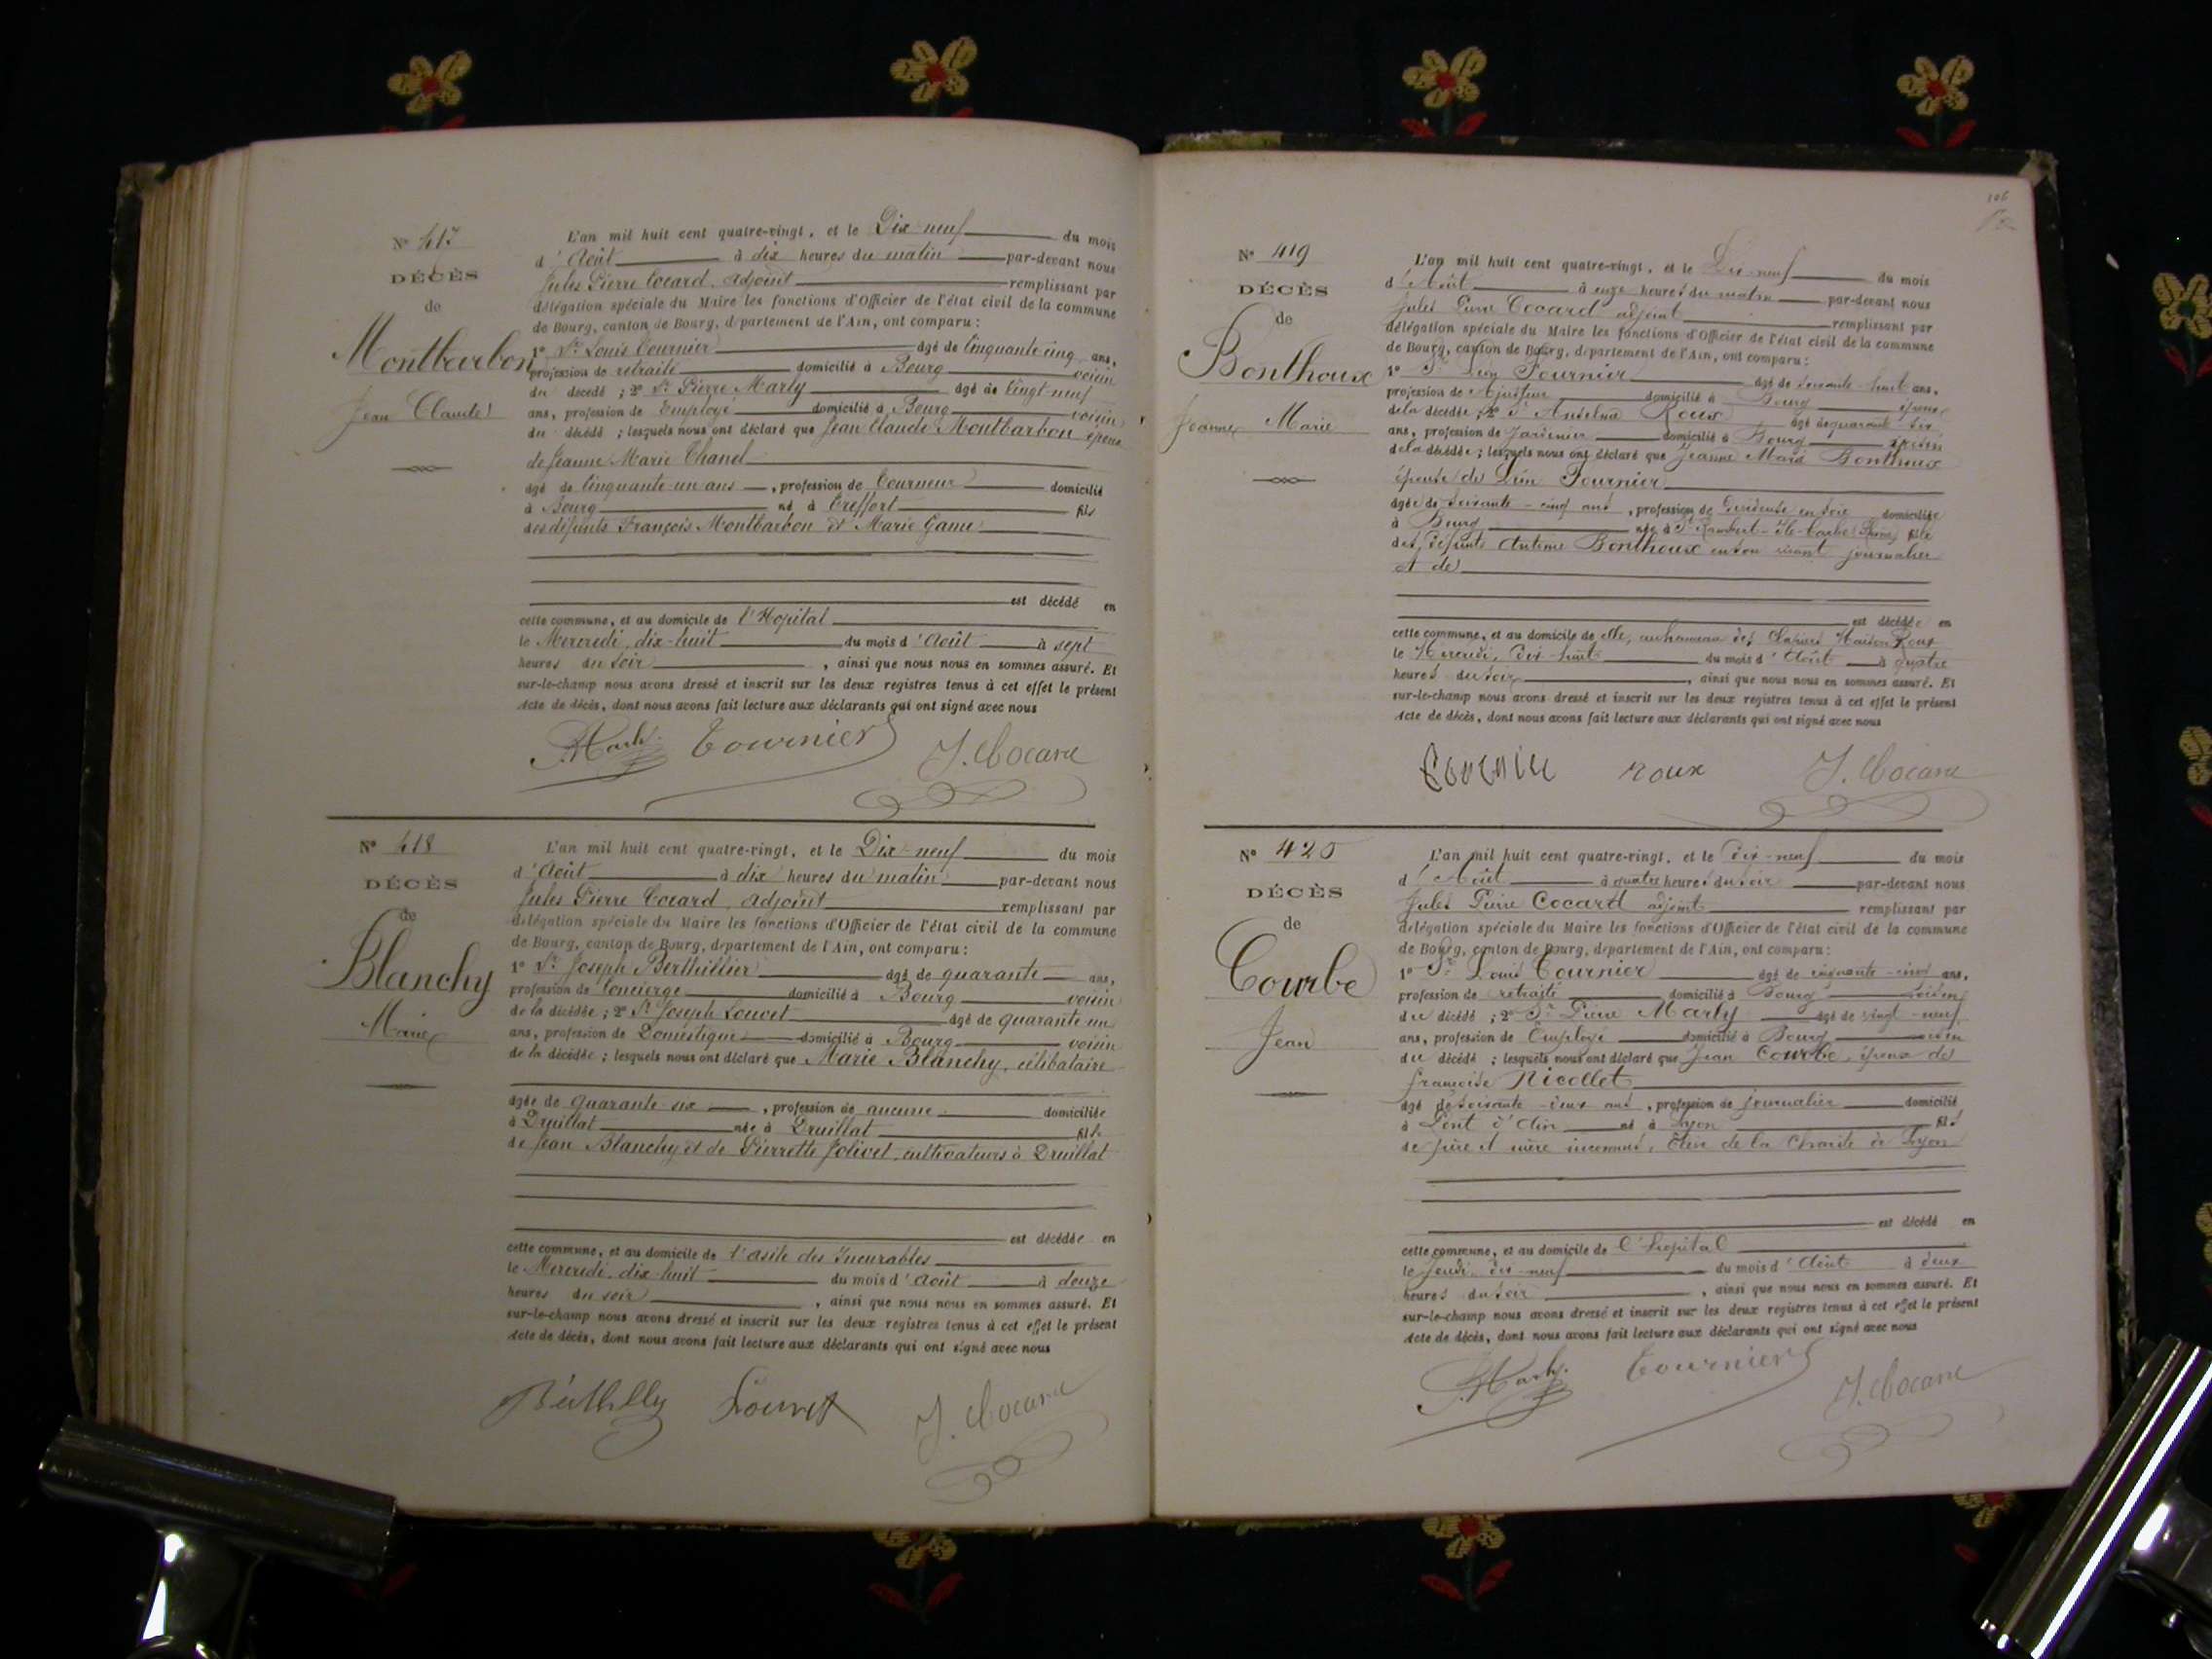 N° 417
DÉCÈS
de
Montbarbon
Jean Claude
L'an mil huit cent quatre-vingt, et le Dix neuf du mois
d'Août à dix heures du matin par-devant nous
Jules Pierre Cocard, adjoint remplissant par
délégation spéciale du Maire les fonctions d'Officier de l'état civil de la commune
de Bourg, canton de Bourg, département de l'Ain, ont comparu :
1° Sr. Louis Tournier âgé de Cinquante cinq ans,
profession de retraité domicilié à Bourg voisin
du décédé ; 2° Sr. Pierre Marly âgé de Vingt-neuf
ans, profession de Employé domicilié à Bourg voisin
du décédé ; lesquels nous ont déclaré que Jean Claude Montbarbon époux
de Jeanne Marie Chanel
âgé de Cinquante un ans, profession de Tourneur domicilié
à Bourg né à Treffort fils
des défunts François Montbarbon et Marie Game
est décédé en
cette commune, et au domicile de l'Hopital
le Mercredi, dix-huit du mois d'Août à sept
heures du soir, ainsi que nous nous en sommes assuré. Et
sur-le-champ nous avons dressé et inscrit sur les deux registres tenus à cet effet le présent
Acte de décès, dont nous avons fait lecture aux déclarants qui ont signé avec nous
P. Marly Tournier J. Cocard
N° 418
DÉCÈS
de
Blanchy
Marie
L'an mil huit cent quatre-vingt, et le Dix-neuf du mois
d'Août à dix heures du matin par-devant nous
Jules Pierre Cocard, adjoint remplissant par
délégation spéciale du Maire les fonctions d'Officier de l'état civil de la commune
de Bourg, canton de Bourg, département de l'Ain, ont comparu :
1° Sr. Joseph Berthillier âgé de quarante ans,
profession de Concierge domicilié à Bourg voisin
de la décédée ; 2° Sr. Joseph Louvet âgé de quarante un
ans, profession de Domestique domicilié à Bourg voisin
de la décédée ; lesquels nous ont déclaré que Marie Blanchy, célibataire
âgée de quarante six, profession de aucune domiciliée
à Druillat née à Druillat fille
de Jean Blanchy et de Pierrette Jolivet, cultivateurs à Druillat
est décédée en
cette commune, et au domicile de l'asile des Incurables
le Mercredi, dix-huit du mois d'Août à douze
heures du soir, ainsi que nous nous en sommes assuré. Et
sur-le-champ nous avons dressé et inscrit sur les deux registres tenus à cet effet le présent
Acte de décès, dont nous avons fait lecture aux déclarants qui ont signé avec nous
Louvet J. Cocard
106
N° 419
DÉCÈS
de
Bonthoux
Jeanne Marie
L'an mil huit cent quatre-vingt, et le Dix-neuf du mois
d'Août à onze heures du matin par-devant nous
Jules Pierre Cocard adjoint remplissant par
délégation spéciale du Maire les fonctions d'Officier de l'état civil de la commune
de Bourg, canton de Bourg, département de l'Ain, ont comparu :
1° Sr Fournier âgé de soixante-huit ans,
profession de Ajusteur domicilié à Bourg époux
de la décédée ; 2° Sr Anselme Roux âgé de quarante six
ans, profession de Jardinier domicilié à Bourg voisin
de la décédée ; lesquels nous ont déclaré que Jeanne Marie Bonthoux
épouse de Fournier
âgée de soixante-cinq ans, profession de Dévideuse en soie domiciliée
à Bourg née à St Rambert-Ile-barbe (Rhône) fille
des défunts Antoine Bonthoux en son vivant journalier
et de
est décédée en
cette commune, et au domicile de elle, au hameau des Maison Roux
le Mercredi, dix-huit du mois d'Août à quatre
heures du soir, ainsi que nous nous en sommes assuré. Et
sur-le-champ nous avons dressé et inscrit sur les deux registres tenus à cet effet le présent
Acte de décès, dont nous avons fait lecture aux déclarants qui ont signé avec nous
roux J. Cocard
N° 420
DÉCÈS
de
Courbe
Jean
L'an mil huit cent quatre-vingt, et le Dix-neuf du mois
d'Août à quatre heures du soir par-devant nous
Jules Pierre Cocard adjoint remplissant par
délégation spéciale du Maire les fonctions d'Officier de l'état civil de la commune
de Bourg, canton de Bourg, département de l'Ain, ont comparu :
1° Sr Louis Tournier âgé de cinquante-cinq ans,
profession de retraité domicilié à Bourg voisin
du décédé ; 2° Sr Pierre Marly âgé de vingt-neuf
ans, profession de Employé domicilié à Bourg voisin
du décédé ; lesquels nous ont déclaré que Jean Courbe, époux de
françoise Nicollet
âgé de soixante-deux ans, profession de journalier domicilié
à Pont d'Ain né à Lyon fils
de père et mère inconnus, Élève de la Charité de Lyon
est décédé en
cette commune, et au domicile de l'hopital
le Jeudi, dix-neuf du mois d'Août à deux
heures du soir, ainsi que nous nous en sommes assuré. Et
sur-le-champ nous avons dressé et inscrit sur les deux registres tenus à cet effet le présent
Acte de décès, dont nous avons fait lecture aux déclarants qui ont signé avec nous
P. Marly Tournier J. Cocard